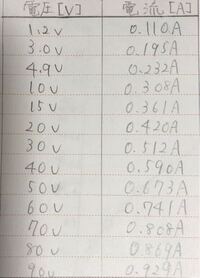 電圧[V] 電流[A]
1.2V 0.110A
3.0V 0.195A
4.9V 0.232A
10V 0.308A
15V 0.361A
20V 0.420A
30V 0.512A
40V 0.590A
50V 0.673A
60V 0.741A
70V 0.808A
80V 0.869A
90V 0.929A